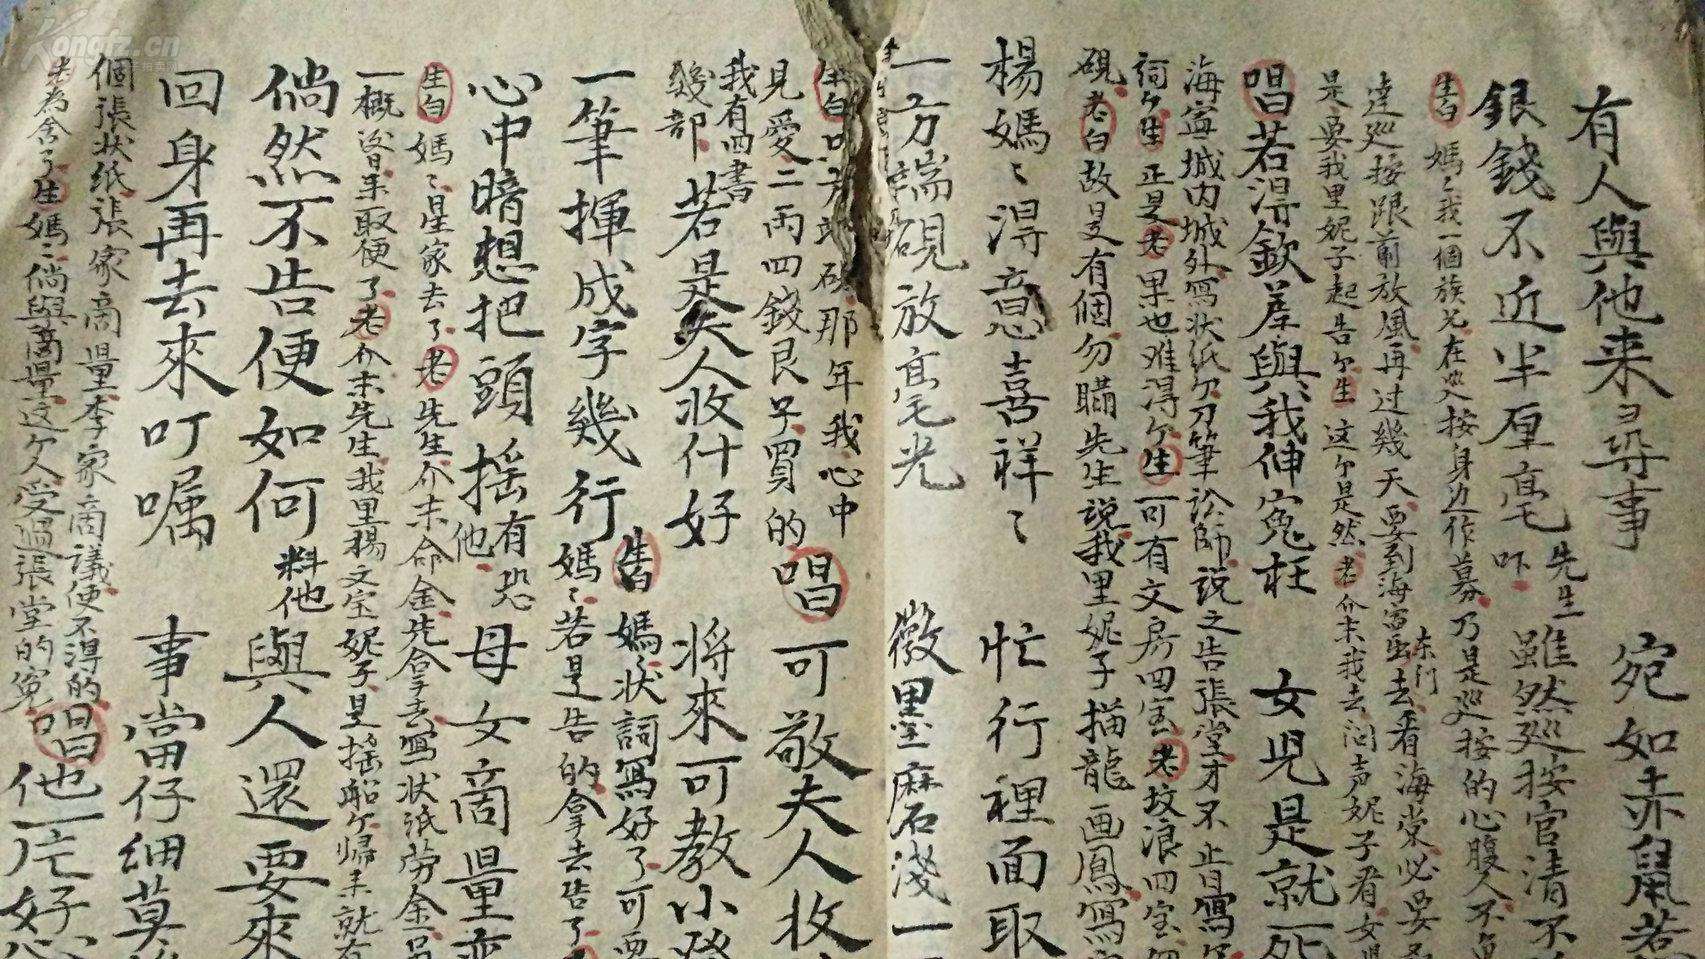 有人與他来尋事 宛如赤鼠若
銀錢不近半厘毫 先生吓 雖然廵按官清不
生白 媽〻我一個族兄在廵按身边作募乃是廵按的心腹人不
達廵按跟前放風再过幾天要到海甯东们去看海棠必要
是要我里妮子起告个生 这个是然老 介末我去问声妮子看女児
唱若淂欽差與我伸寃枉 女児是就死
海甯城内城外寫状纸个刀筆訟師説之告張堂才不止
祠个生 正是老果也难淂个生 可有文房四宝老坟浪四宝
硯老白故是有個勿瞞先生説我里妮子描龍画鳳寫
楊媽〻淂意喜祥〻 忙行裡面取
一方端硯放毫光 徽墨磨淺一
生白 那年我心中
見愛二両四錢艮子買的唱 可敬夫人收
我有西書
幾部 若是夫人收什好 将來可教小
一筆揮成字幾行 生白 媽〻状詞寫好了可要
媽〻若是告的拿去告了
心中暗想把頭摇 有恐他 母女商量
生白 媽〻是家去了老 先生介末命金先拿去寫状纸劳金
一概後日來取便了老介末先生我里楊文宝妮子是摇船个归来就有
倘然不告便如何 料他 與人還要來
回身再去來叮嘱 事當仔細莫
個張状纸張家商量李家商議便不淂的唱 他一片好
老為舍了生媽〻倘與商量这个人受過張堂的寃